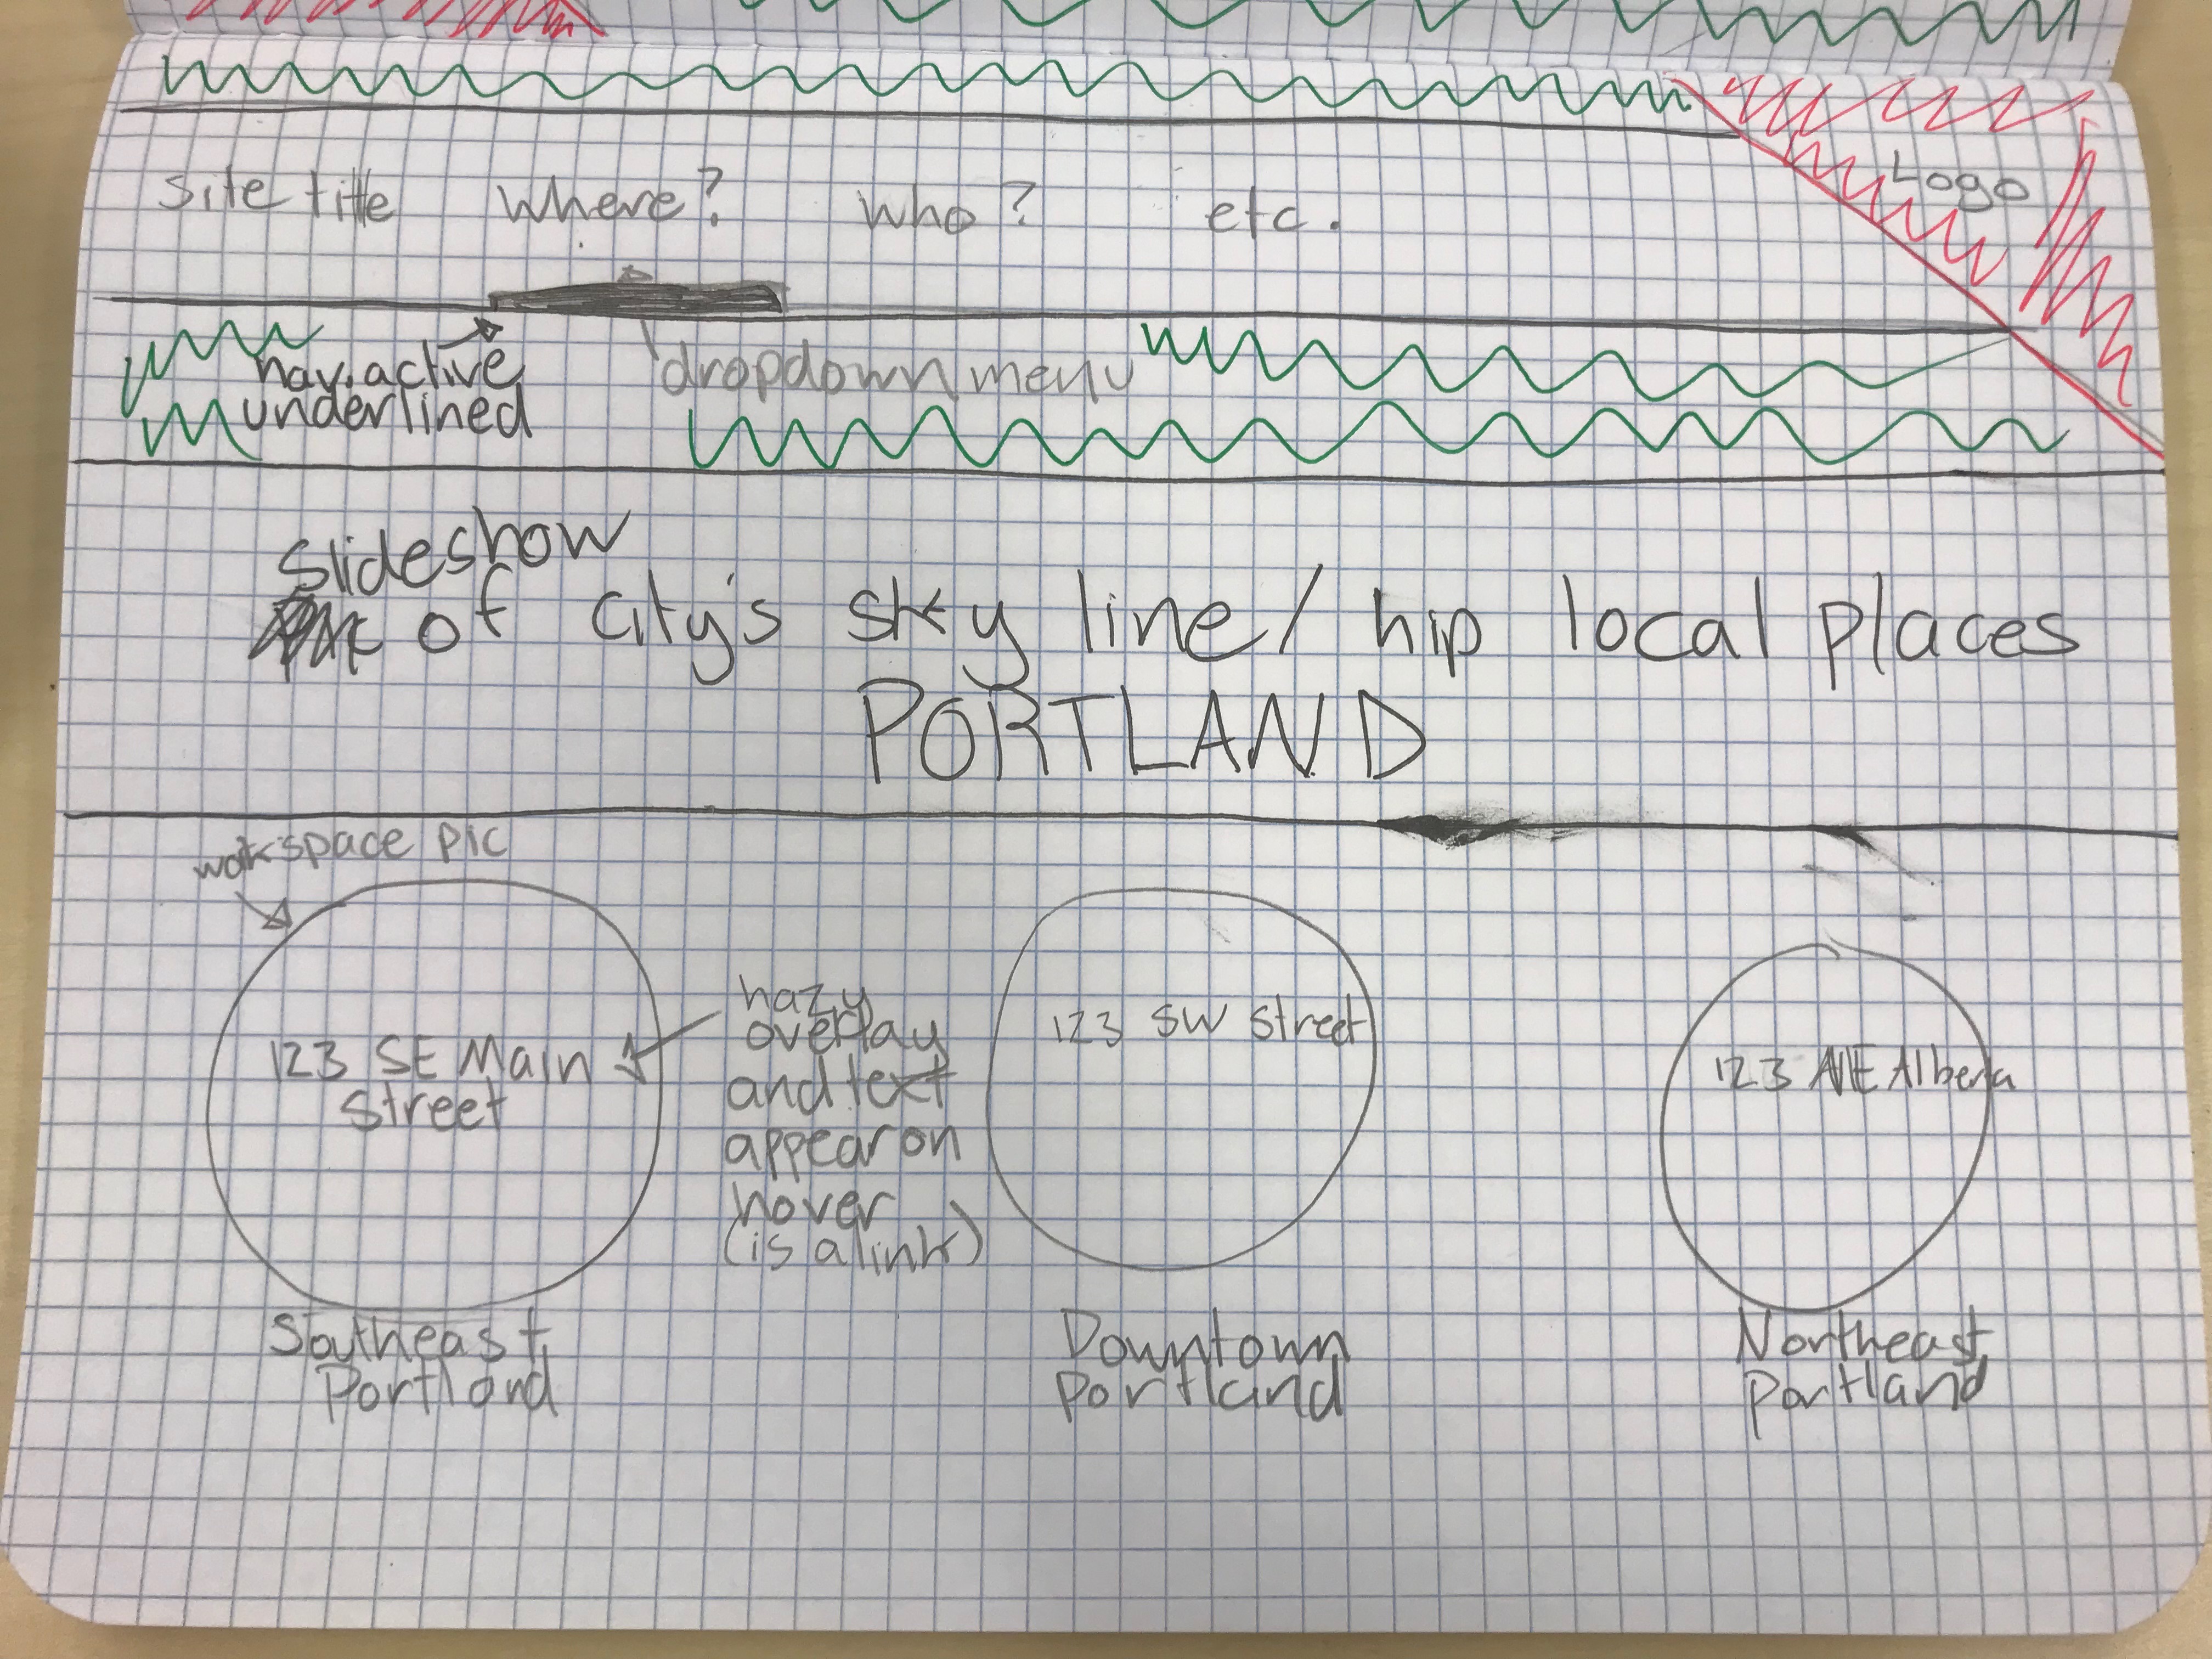 site title where? who? etc. Logo
nav.active dropdown menu
underlined
Slideshow
of city's sky line / hip local places
PORTLAND
workspace pic
123 SE Main
Street
hazy
overlay
and text
appear on
hover
(is a link)
123 SW Street
123 NE Alberta
Southeast
Portland
Downtown
Portland
Northeast
Portland